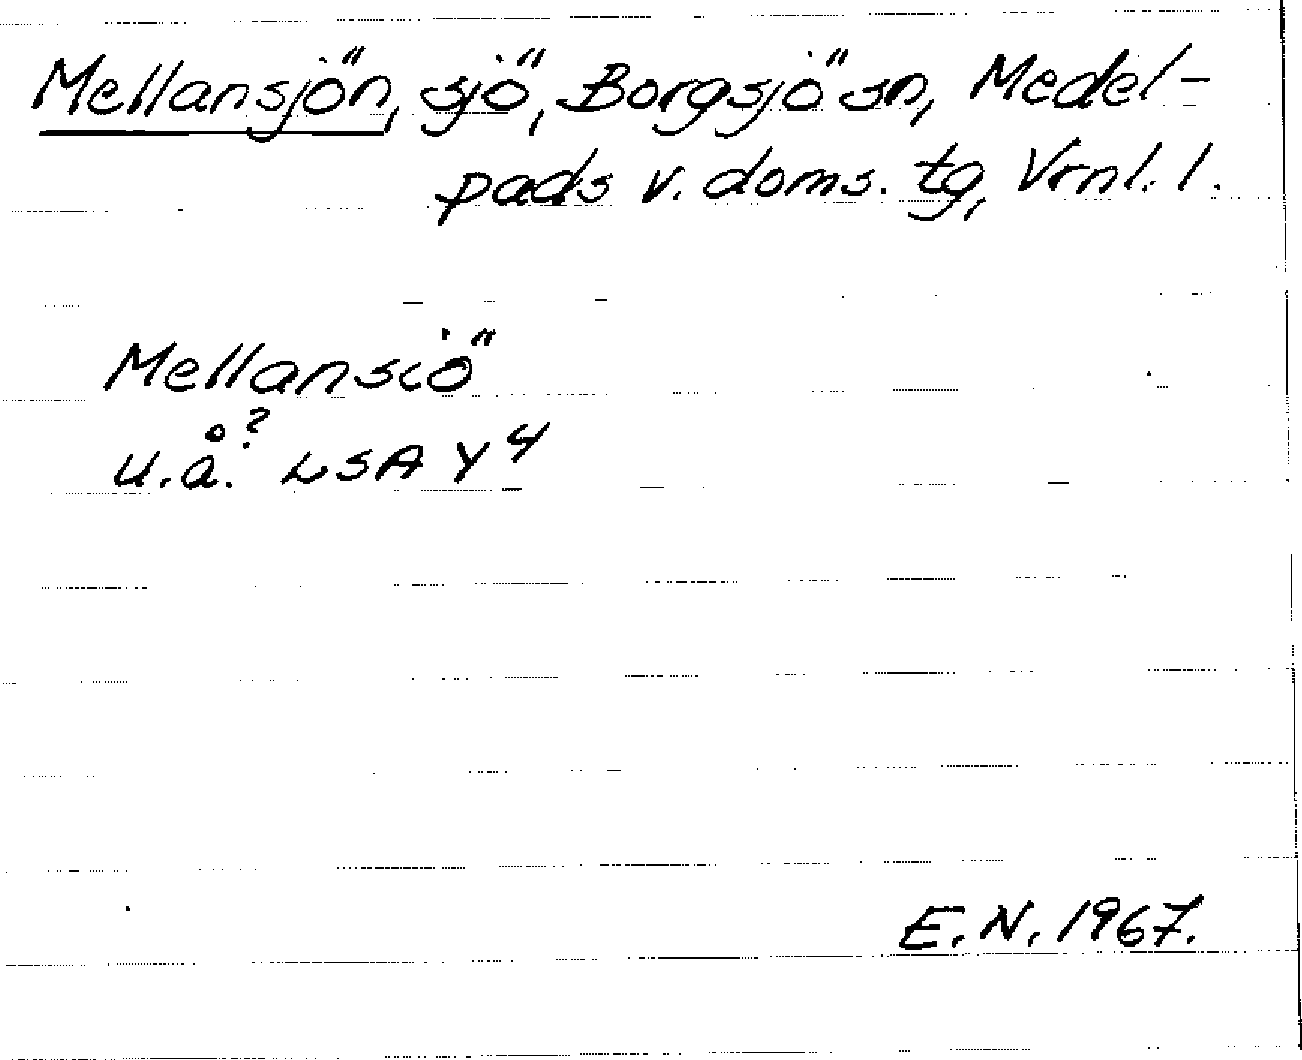 Mellansjön, sjö, Borgsjö sn, Medel-
pads v. doms. tg, Vrnl. l.
Mellansiö
u.å.? LSA Y 4
E.N. 1967.